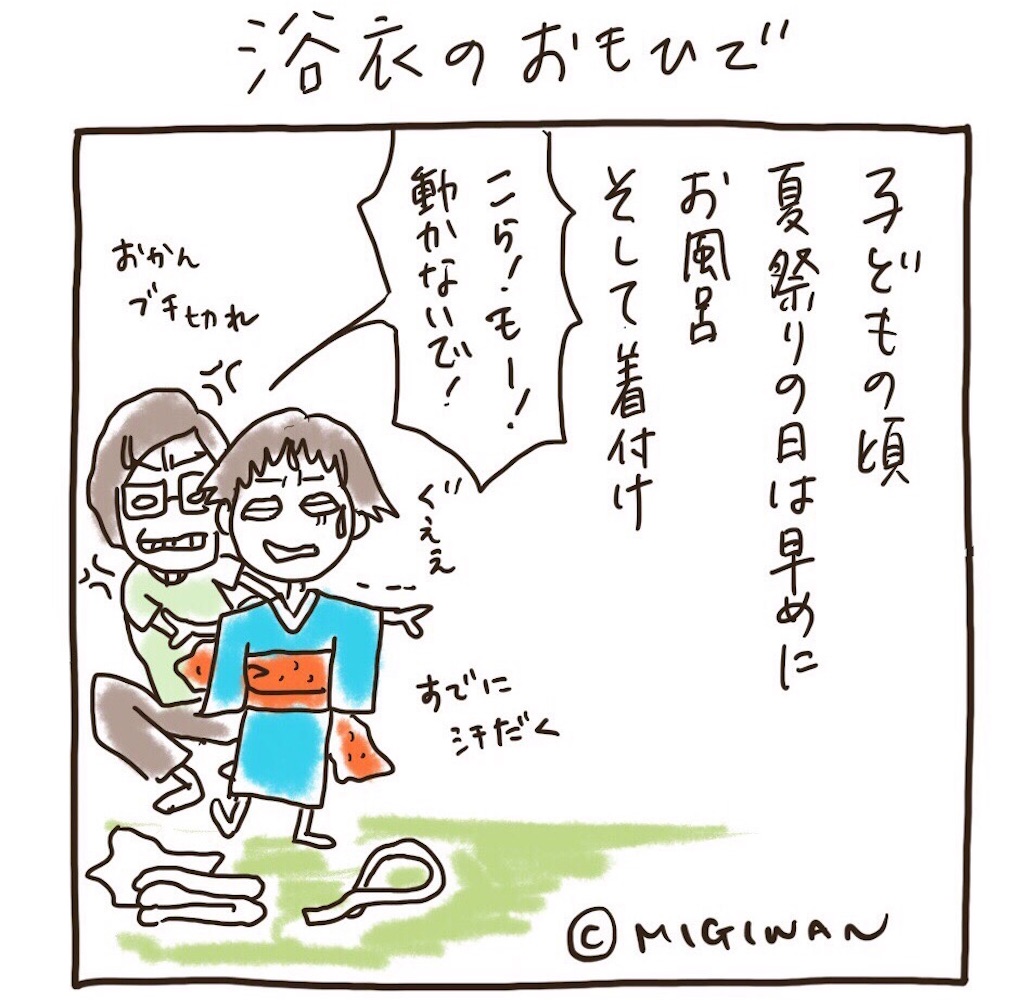 浴衣のおもひで
子どもの頃
夏祭りの日は早めに
お風呂
そして着付け
こら!もー!
動かないで!
おかん
ブチ切れ
ぐぇぇ
すでに
汗だく
©MIGIWAN